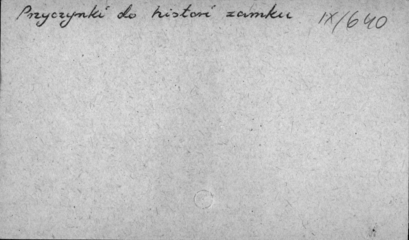 Przyczynki do histori zamku IX/640